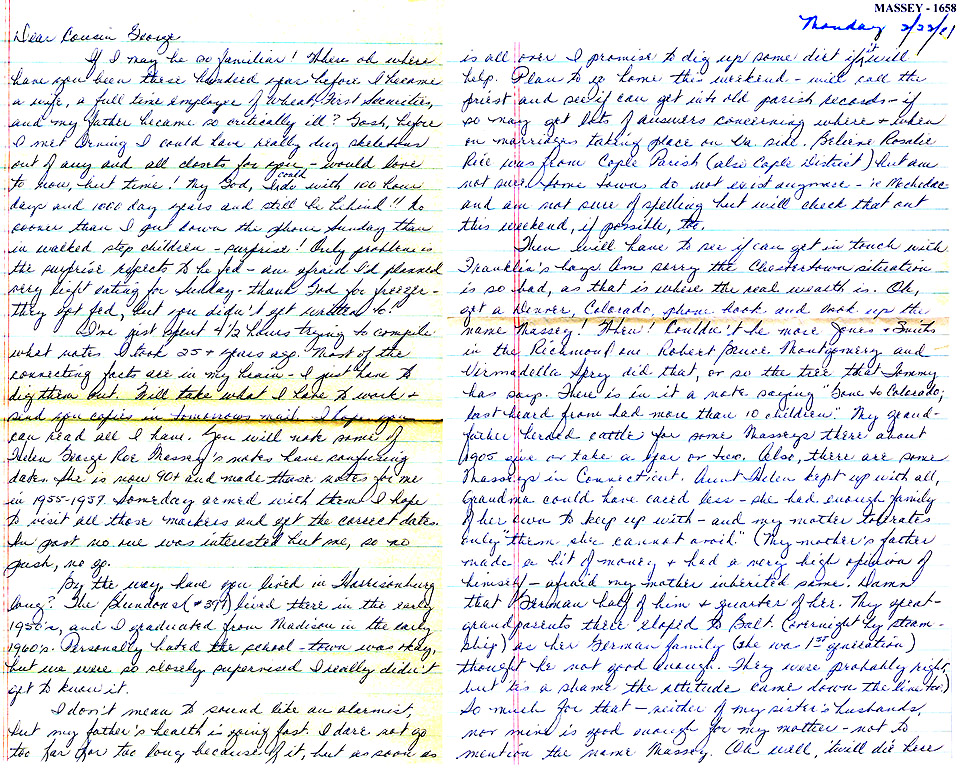 MASSEY - 1658
Monday 2/22/81
Dear Cousin George
If I may be so familiar! Where oh where
have you been these hundred years before I became
a wife, a full time employee of Wheat First Securities,
and my father became so critically ill? Gosh, before
I met Orning I could have really dug skeletons
out of any and all closets for you - would love
to now, but time! My God, I could do with 100 hour
days and 1000 day years and still be behind!! No
sooner than I put down the phone Sunday than
in walked step children - surprise! Only problem is
the surprise expects to be fed - am afraid I'd planned
very light eating for Sunday - thank God for freezer -
they got fed, but you didn't get written to!
I've just spent 4 1/2 hours trying to compile
what notes I took 25+ years ago. Most of the
connecting facts are in my brain - I just have to
dig them out. Will take what I have to work +
send you copies in tomorrows mail. I hope you
can read all I have. You will note some of
Helen George Roe Massey's notes have confusing
dates. She is now 90+ and made those notes for me
in 1955-1957. Someday armed with them I hope
to visit all those markers and get the correct dates.
In past no one was interested but me, so no
push, no go.
By the way, have you lived in Harrisonburg
long? The Blundons (#397) lived there in the early
1950's, and I graduated from Madison in the early
1960's. Personally hated the school - town was okay,
but we were so closely supervised I really didn't
get to know it.
I don't mean to sound like an alarmist,
but my father's health is going fast. I dare not go
too far for too long because of it, but as soon as
is all over I promise to dig up some dirt if it will
help. Plan to go home this weekend - will call the
priest and see if can get into old parish records - if
so may get lots of answers concerning where + when
on marriages taking place on Va. side. Believe Rosalie
Rice was from Cople Parish (also Cople District) but am
not sure. Some towns do not exist anymore - ie Machodac
and am not sure of spelling but will check that out
this weekend, if possible, too.
Then will have to see if can get in touch with
Franklin's boys. Am sorry the Chestertown situation
is so bad, as that is where the real wealth is. Oh,
get a Denver, Colorado, phone book and look up the
name Massey! Whew! Couldn't be more Jones + Smiths
in the Richmond one. Robert Bruce Montgomery and
Vermadella Spry did that, or so the tree that Tommy
has says. There is in it a note saying "Gone to Colorado;
last heard from had more than 10 children." My grand-
father herded cattle for some Masseys there about
1905 give or take a year or two. Also, there are some
Masseys in Connecticut. Aunt Helen kept up with all,
Grandma could have cared less - she had enough family
of her own to keep up with - and my mother tolerates
only "them she cannot avoid." (My mother's father
made a bit of money + had a very high opinion of
himself - afraid my mother inherited some. Damn
that German half of him + quarter of her. My great-
grandparents there eloped to Balt. (overnight by steam-
ship) as her German family (she was 1st generation)
thought he not good enough. They were probably right,
but 'tis a shame the attitude came down the line too.)
So much for that - neither of my sister's husbands,
nor mine is good enough for my mother - not to
mention the name Massey. Oh well, 'twill die here